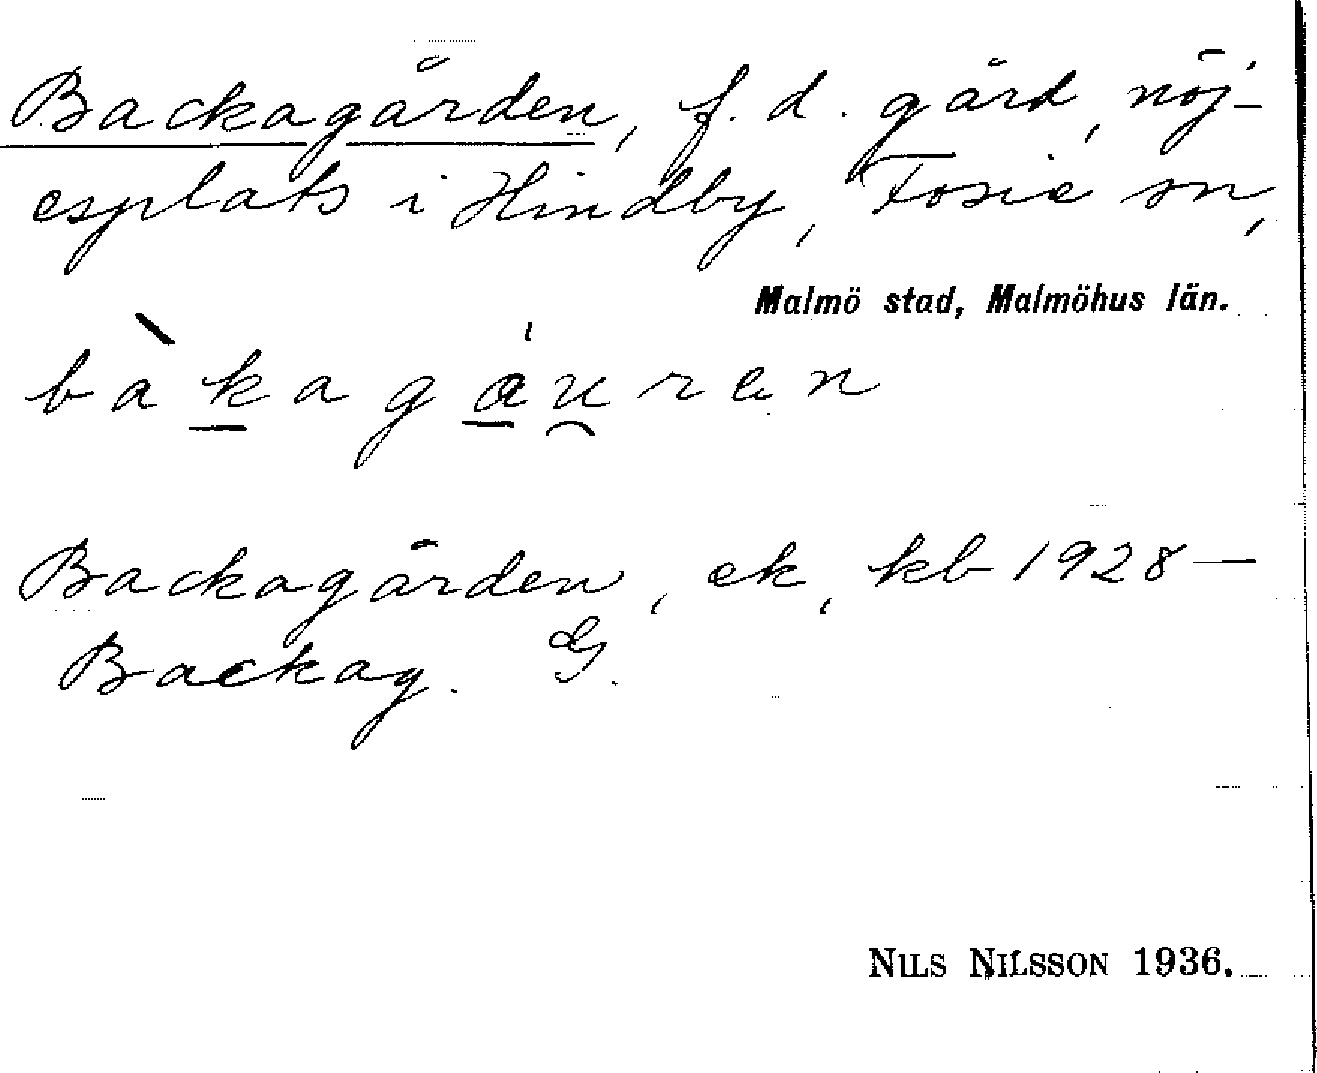 Backagården, f. d. gård, nöj-
esplats i Hindby, Fosie sn,
Malmö stad, Malmöhus län.
bàkagáuren
Backagården, ek, kb 1928—
Backag. G.
NILS NILSSON 1936.